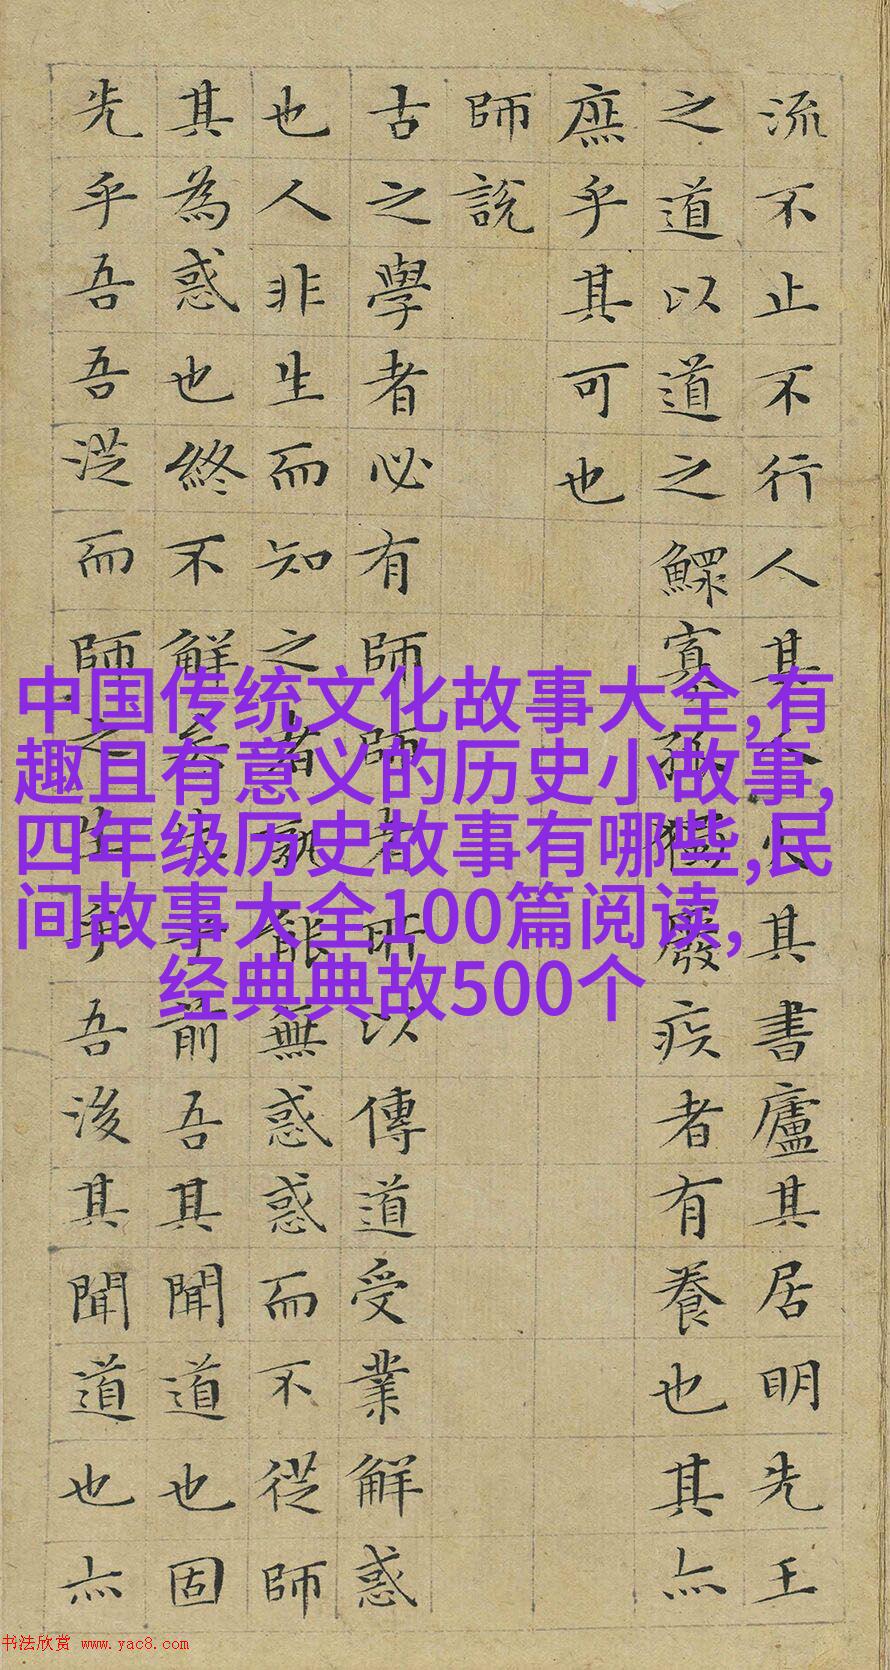 流不止不行人其人火其書廬其居明先王
之道以道之鰥寡孤獨廢疾者有養也其亦
庶乎其可也
師說
古之學者必有師師者所以傳道受業解惑
也人非生而知之者孰能無惑惑而不從師
其為惑也終不解矣生乎前吾其聞道也固
先乎吾吾從而師之生乎吾後其聞道也亦
中国传统文化故事大全,有
趣且有意义的历史小故事,
四年级历史故事有哪些,民
间故事大全100篇阅读,
经典典故500个
书法欣赏 www.yac8.com